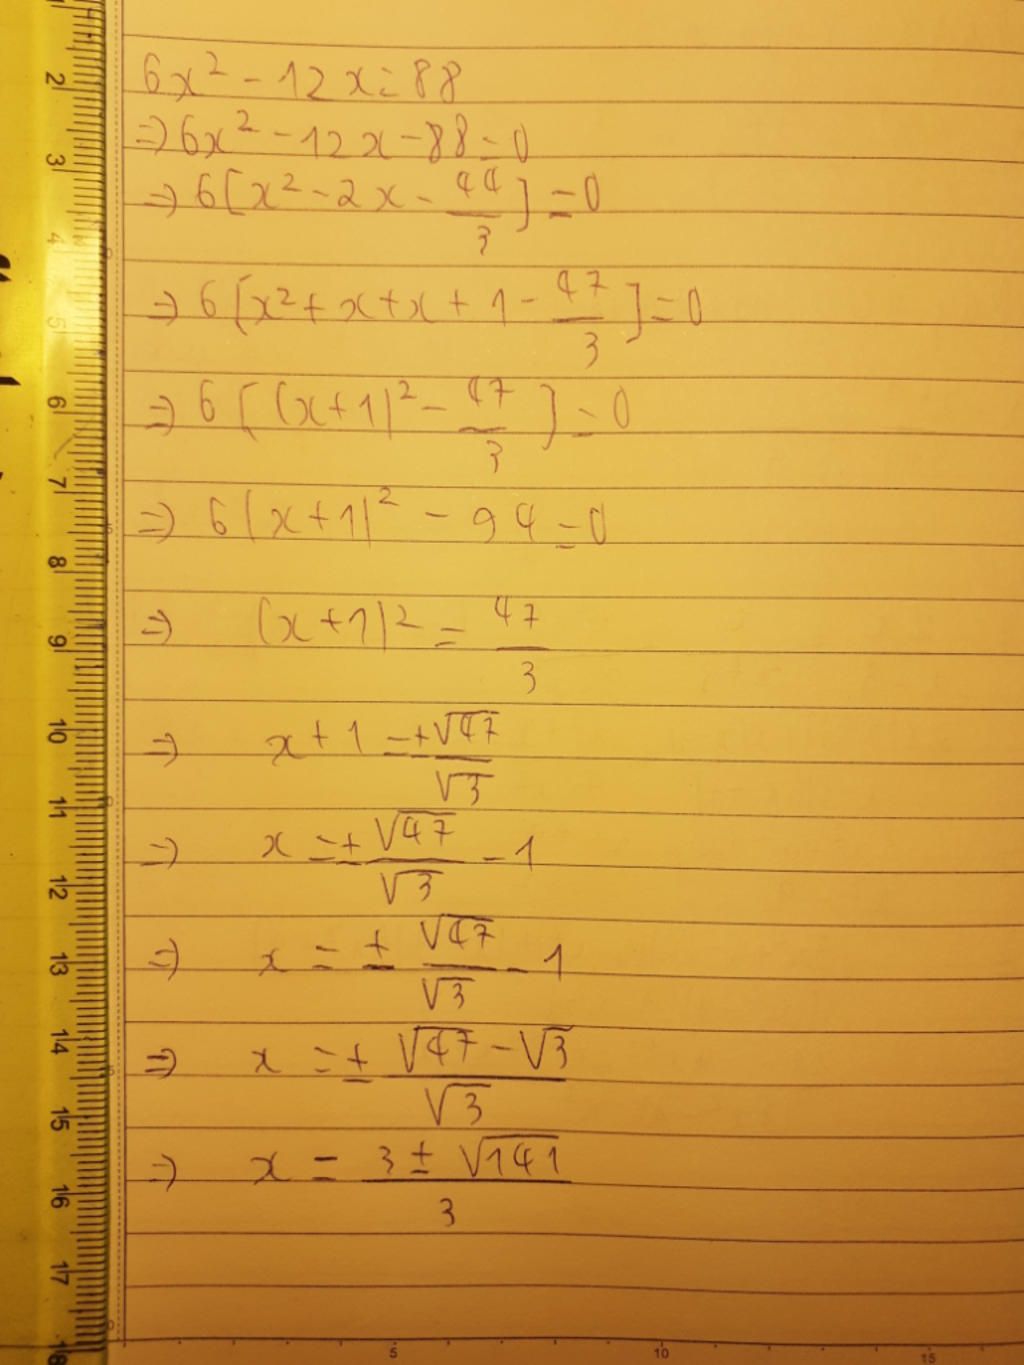 6x² - 12x = 88
⇒ 6x² - 12x - 88 = 0
⇒ 6[x² - 2x - 44/3] = 0
⇒ 6[x² + x + x + 1 - 47/3] = 0
⇒ 6[(x+1)² - 47/3] = 0
⇒ 6(x+1)² - 94 = 0
⇒ (x+1)² = 47/3
⇒ x + 1 = ±√47/√3
⇒ x = ±√47/√3 - 1
⇒ x = ± √47/√3 - 1
⇒ x = ± (√47 - √3)/√3
⇒ x = (3 ± √141)/3
2
3
4
5
6
7
8
9
10
11
12
13
14
15
16
17
18
5 10 15